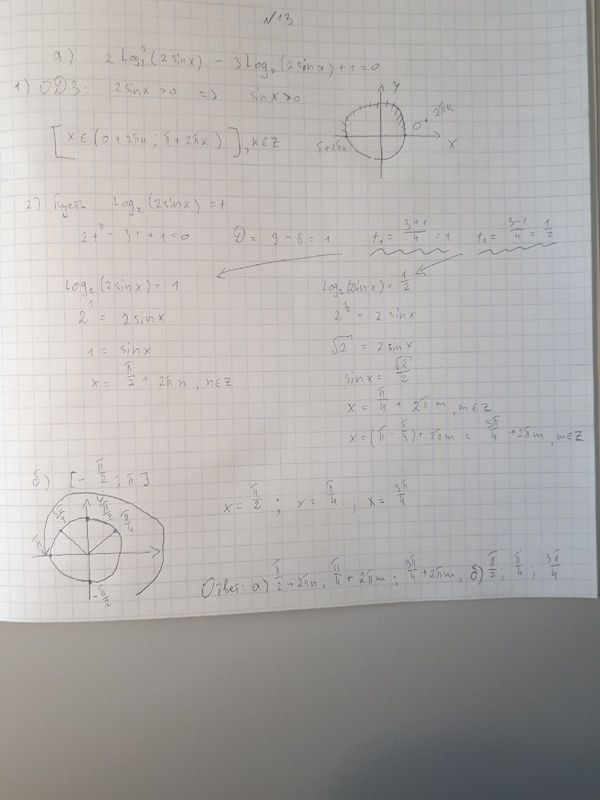 N13
а) 2 Log₂²(2sinx) - 3Log₂(2sinx)+1=0
1) ОДЗ: 2sinx>0 => sinx>0
y
0+2πk
π+2πk
x
[x∈(0+2πk; π+2πk)], k∈Z
2) Пусть Log₂(2sinx)=t
2t²-3t+1=0 D=9-8=1 t₁=(3+1)/4=1 t₂=(3-1)/4=1/2
Log₂(2sinx)=1
2¹=2sinx
1=sinx
x=π/2+2πn, n∈Z
Log₂(2sinx)=1/2
2^(1/2)=2sinx
√2=2sinx
sinx=√2/2
x=π/4+2πm, m∈Z
x=(π-π/4)+2πm=3π/4+2πm, m∈Z
б) [-π/2; π]
π
3π/4
y
π/2
π/4
-π/2
x=π/2; x=π/4; x=3π/4
Ответ: а) π/2+2πn; π/4+2πm; 3π/4+2πm, б) π/2; π/4; 3π/4